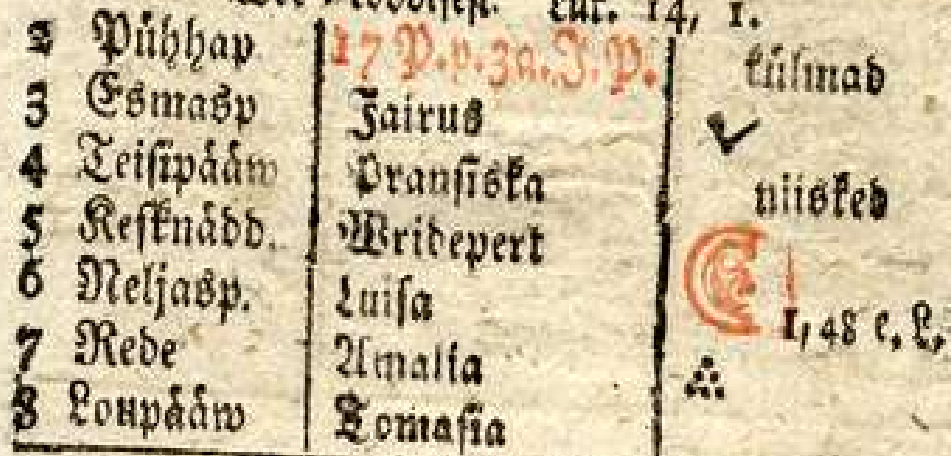 Luk. 14, 1.
2 Pühhap 17 P. p. 3a. J. P. külmad
3 Esmasp Jairus
4 Teisipääw Pransiska niisked
5 Kesknädd. Wridepert
6 Neljasp. Luisa 1, 48 e. L.
7 Rede Amalia
8 Loupääw Tomasia